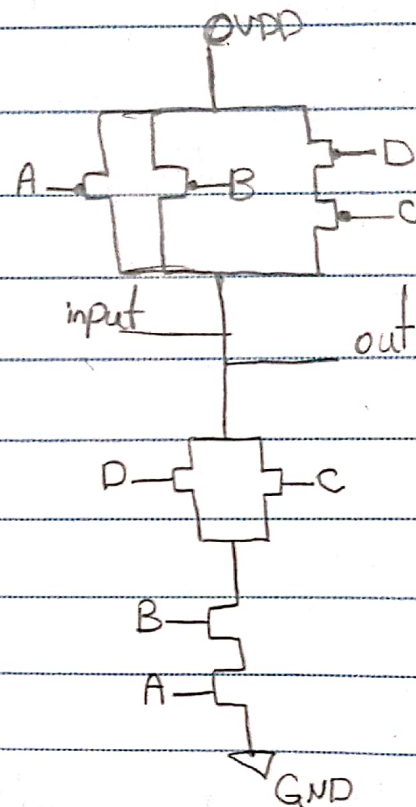 VDD
A B D
C
input
out
D C
B
A
GND